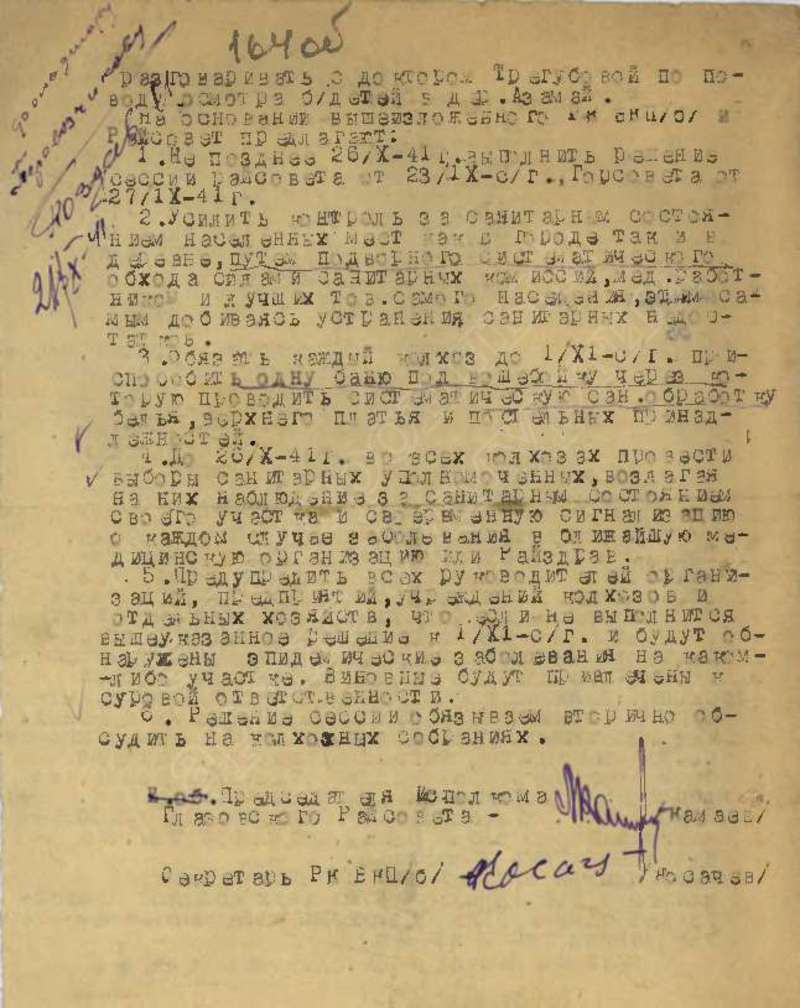 164 об
разговаривать с доктором Трегубовой по по-
воду осмотра б/детей в дер. Азамай.
На основании вышеизложенного РК ВКП/б/ и
Райсовет предлагает:
1. Не позднее 26/X-41г. выполнить решение
сессии райсовета от 23/IX-с/г., Горсовета от
27/IX-41г.
2. Усилить контроль за санитарным состоя-
нием населенных мест как в городе так и в
деревне, путем подворного систематического
обхода силами санитарных комиссий, мед. работ-
ников и лучших тов. самого населения, этим са-
мым добиваясь устранения санитарных недос-
татков.
3. Обязать каждый колхоз до 1/XI-с/г. при-
способить одну баню под вошебойку через ко-
торую проводить систематическую сан. обработку
белья, верхнего платья и постельных принад-
лежностей.
4. До 26/X-41г. во всех колхозах провести
выборы санитарных уполномоченных, возлагая
на них наблюдение за санитарным состоянием
своего участка и своевременную сигнализацию
о каждом случае заболевания в ближайшую ме-
дицинскую организацию или Райздрав.
5. Предупредить всех руководителей органи-
заций, предприятий, учреждений колхозов и
отдельных хозяйств, что если не выполнится
вышеуказанное решение к 1/XI-с/г. и будут об-
наружены эпидемические заболевания на каком-
-либо участке. Виновные будут привлечены к
суровой ответственности.
6. Решение сессии обязываем вторично об-
судить на колхозных собраниях.
Председателя Исполкома
Глазовского Райсовета -
Секретарь РК ВКП/б/ Косач /Косачев/